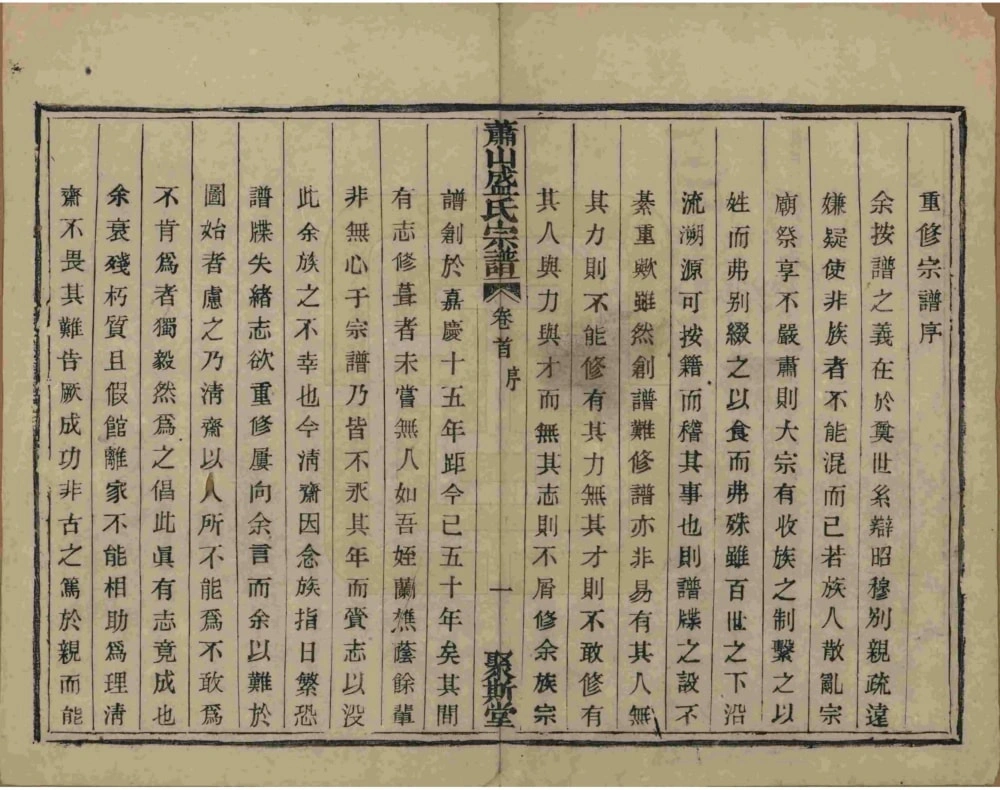 重修宗譜序
余按譜之義在於奠世系辯昭穆別親疏遠
嫌疑使非族者不能混而已若族人散亂宗
廟祭享不嚴肅則大宗有收族之制繫之以
姓而弗別綴之以食而弗殊雖百世之下沿
流溯源可按籍而稽其事也則譜牒之設不
綦重歟雖然創譜難修譜亦非易有其人無
其力則不能修有其力無其才則不敢修有
其人與力與才而無其志則不屑修余族宗
蕭山盛氏宗譜 卷首 序 一 聚斯堂
譜創於嘉慶十五年距今已五十年矣其間
有志修葺者未嘗無人如吾姪蘭樵蔭餘輩
非無心于宗譜乃皆不永其年而賫志以没
此余族之不幸也今淸齋因念族指日繁恐
譜牒失緒志欲重修屢向余言而余以難於
圖始者慮之乃淸齋以人所不能爲不敢爲
不肯爲者獨毅然爲之倡此眞有志竟成也
余衰殘朽質且假館離家不能相助爲理淸
齋不畏其難告厥成功非古之篤於親而能